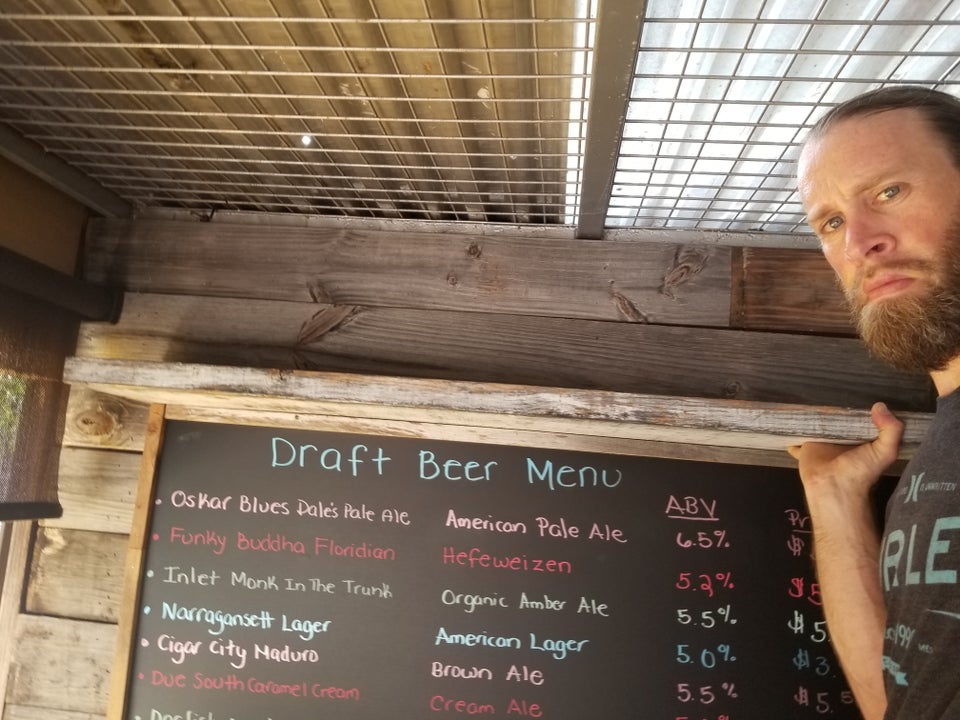 Draft Beer Menu
ABV
• Oskar Blues Dale's Pale Ale American Pale Ale 6.5% $
• Funky Buddha Floridian Hefeweizen 5.2% $5
• Inlet Monk In The Trunk Organic Amber Ale 5.5% $5.
• Narragansett Lager American Lager 5.0% $3
• Cigar City Maduro Brown Ale 5.5% $5.5
• Due South Caramel Cream Cream Ale
RLE